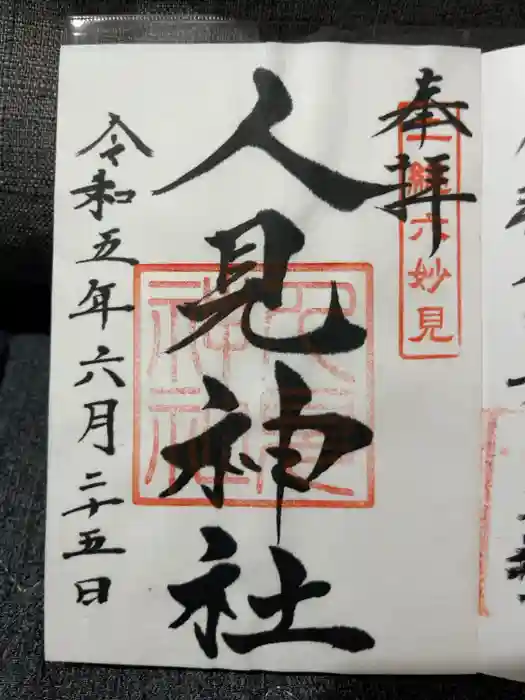 奉拝
上総六妙見
人見神社
令和五年六月二十五日